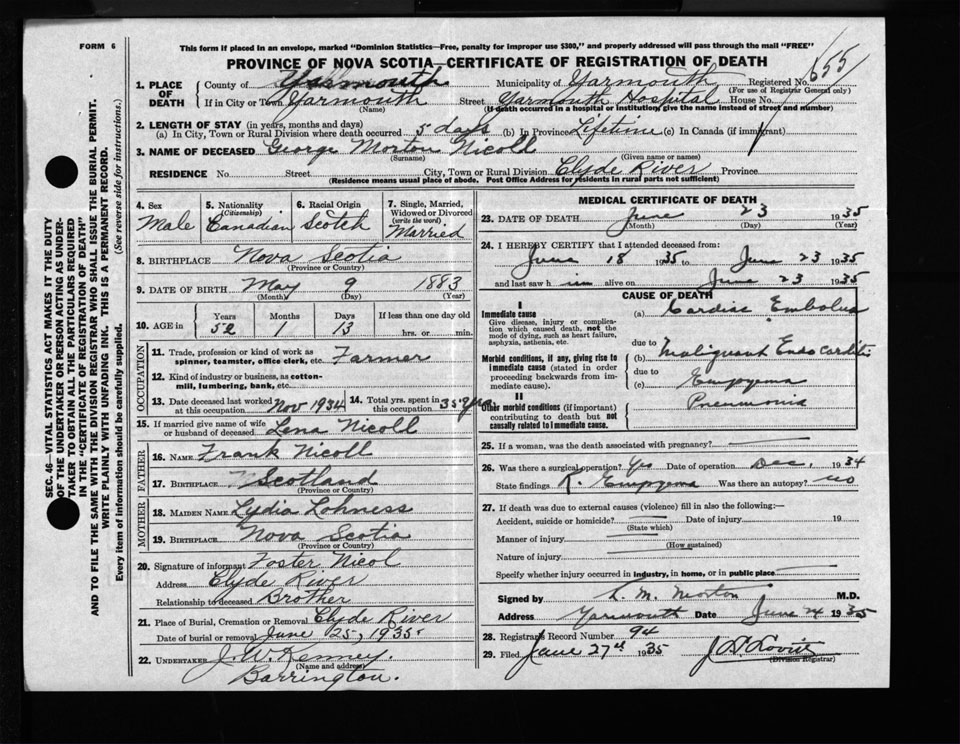 FORM 6
This form if placed in an envelope, marked "Dominion Statistics—Free, penalty for improper use $300," and properly addressed will pass through the mail "FREE"
PROVINCE OF NOVA SCOTIA—CERTIFICATE OF REGISTRATION OF DEATH
655
1. PLACE OF DEATH County of Yarmouth Municipality of Yarmouth Registered No.
(For use of Registrar General only)
If in City or Town Yarmouth Street Yarmouth Hospital House No.
(Name) (If death occurred in a hospital or institution, give name instead of street and number)
2. LENGTH OF STAY (in years, months and days)
(a) In City, Town or Rural Division where death occurred 5 days (b) In Province Lifetime (c) In Canada (if immigrant)
3. NAME OF DECEASED George Morton Nicoll
(Surname) (Given name or names)
RESIDENCE No. Street City, Town or Rural Division Clyde River Province
(Residence means usual place of abode. Post Office Address for residents in rural parts not sufficient)
SEC. 46—VITAL STATISTICS ACT MAKES IT THE DUTY
OF THE UNDERTAKER OR PERSON ACTING AS UNDER-
TAKER TO OBTAIN ALL THE PARTICULARS REQUIRED
IN THE "CERTIFICATE OF REGISTRATION OF DEATH"
AND TO FILE THE SAME WITH THE DIVISION REGISTRAR WHO SHALL ISSUE THE BURIAL PERMIT.
WRITE PLAINLY WITH UNFADING INK. THIS IS A PERMANENT RECORD.
Every item of information should be carefully supplied. (See reverse side for instructions.)
4. Sex Male
5. Nationality (Citizenship) Canadian
6. Racial Origin Scotch
7. Single, Married, Widowed or Divorced (write the word) Married
8. BIRTHPLACE Nova Scotia
(Province or Country)
9. DATE OF BIRTH May 9 1883
(Month) (Day) (Year)
10. AGE in Years Months Days If less than one day old
52 1 13 hrs. or min.
OCCUPATION
11. Trade, profession or kind of work as spinner, teamster, office clerk, etc. Farmer
12. Kind of industry or business, as cotton-mill, lumbering, bank, etc.
13. Date deceased last worked at this occupation Nov 1934 14. Total yrs. spent in this occupation 35 yrs.
15. If married give name of wife or husband of deceased Lena Nicoll
FATHER
16. NAME Frank Nicoll
17. BIRTHPLACE Scotland
(Province or Country)
MOTHER
18. MAIDEN NAME Lydia Lohness
19. BIRTHPLACE Nova Scotia
(Province or Country)
20. Signature of informant Foster Nicol
Address Clyde River
Relationship to deceased Brother
21. Place of Burial, Cremation or Removal Clyde River
Date of burial or removal June 25, 1935
22. UNDERTAKER J. W. Kenney,
(Name and address)
Barrington.
MEDICAL CERTIFICATE OF DEATH
23. DATE OF DEATH June 23 1935
(Month) (Day) (Year)
24. I HEREBY CERTIFY that I attended deceased from:
June 18 1935 to June 23 1935
and last saw him alive on June 23 1935
CAUSE OF DEATH
I
Immediate cause
Give disease, injury or complication which caused death, not the mode of dying, such as heart failure, asphyxia, asthenia, etc.
(a) Cardiac Embolus
due to
Morbid conditions, if any, giving rise to immediate cause (stated in order proceeding backwards from immediate cause).
(b) Malignant Endocarditis
due to
(c) Empyema
II
Other morbid conditions (if important) contributing to death but not causally related to immediate cause.
Pneumonia
25. If a woman, was the death associated with pregnancy?
26. Was there a surgical operation? Yes Date of operation Dec. 1934
State findings R. Empyema Was there an autopsy? no
27. If death was due to external causes (violence) fill in also the following:—
Accident, suicide or homicide? Date of injury 19
(State which)
Manner of injury
(How sustained)
Nature of injury
Specify whether injury occurred in industry, in home, or in public place
Signed by L. M. Morton M.D.
Address Yarmouth Date June 24 1935
28. Registrar's Record Number 94
29. Filed June 27th 1935
(Division Registrar)